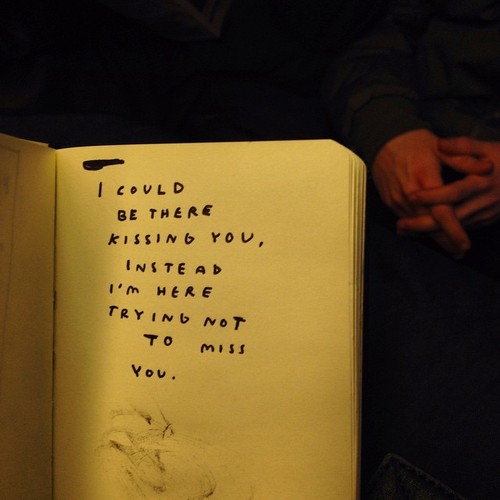 I COULD
BE THERE
KISSING YOU,
INSTEAD
I'M HERE
TRYING NOT
TO MISS
YOU.